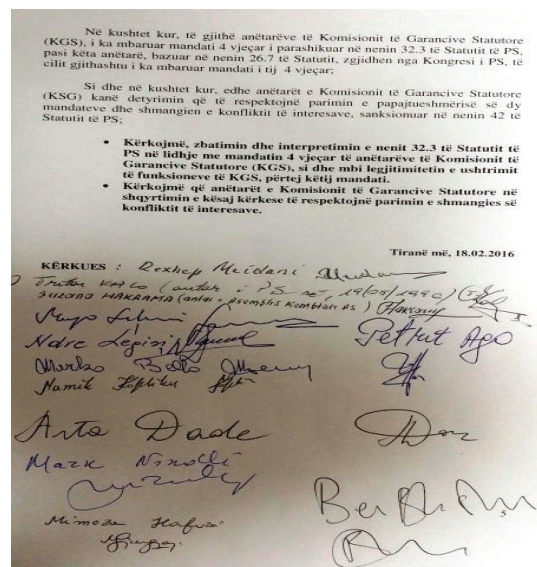 Në kushtet kur, të gjithë anëtarëve të Komisionit të Garancive Statutore
(KGS), i ka mbaruar mandati 4 vjeçar i parashikuar në nenin 32.3 të Statutit të PS,
pasi këta anëtarë, bazuar në nenin 26.7 të Statutit, zgjidhen nga Kongresi i PS, të
cilit gjithashtu i ka mbaruar mandati i tij 4 vjeçar;
Si dhe në kushtet kur, edhe anëtarët e Komisionit të Garancive Statutore
(KSG) kanë detyrimin që të respektojnë parimin e papajtueshmërisë së dy
mandateve dhe shmangien e konfliktit të interesave, sanksionuar në nenin 42 të
Statutit të PS;
• Kërkojmë, zbatimin dhe interpretimin e nenit 32.3 të Statutit të
PS në lidhje me mandatin 4 vjeçar të anëtarëve të Komisionit të
Garancive Statutore (KGS), si dhe mbi legjitimitetin e ushtrimit
të funksioneve të KGS, përtej këtij mandati.
• Kërkojmë që anëtarët e Komisionit të Garancive Statutore në
shqyrtimin e kësaj kërkese të respektojnë parimin e shmangies së
konfliktit të interesave.
Tiranë më, 18.02.2016
KËRKUES : Rexhep Meidani
(antar i PS
SUZANA HAKRAMA (antar i Asamblis Kombtare PS)
Ndre Legisi Petrit Ago
Namik Kopliku
Arta Dade
Mark
Mimoza Hafizi
5